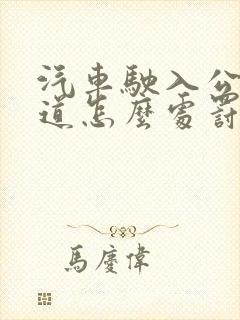 汽車駛入公
道怎麼處罰
馬慶偉